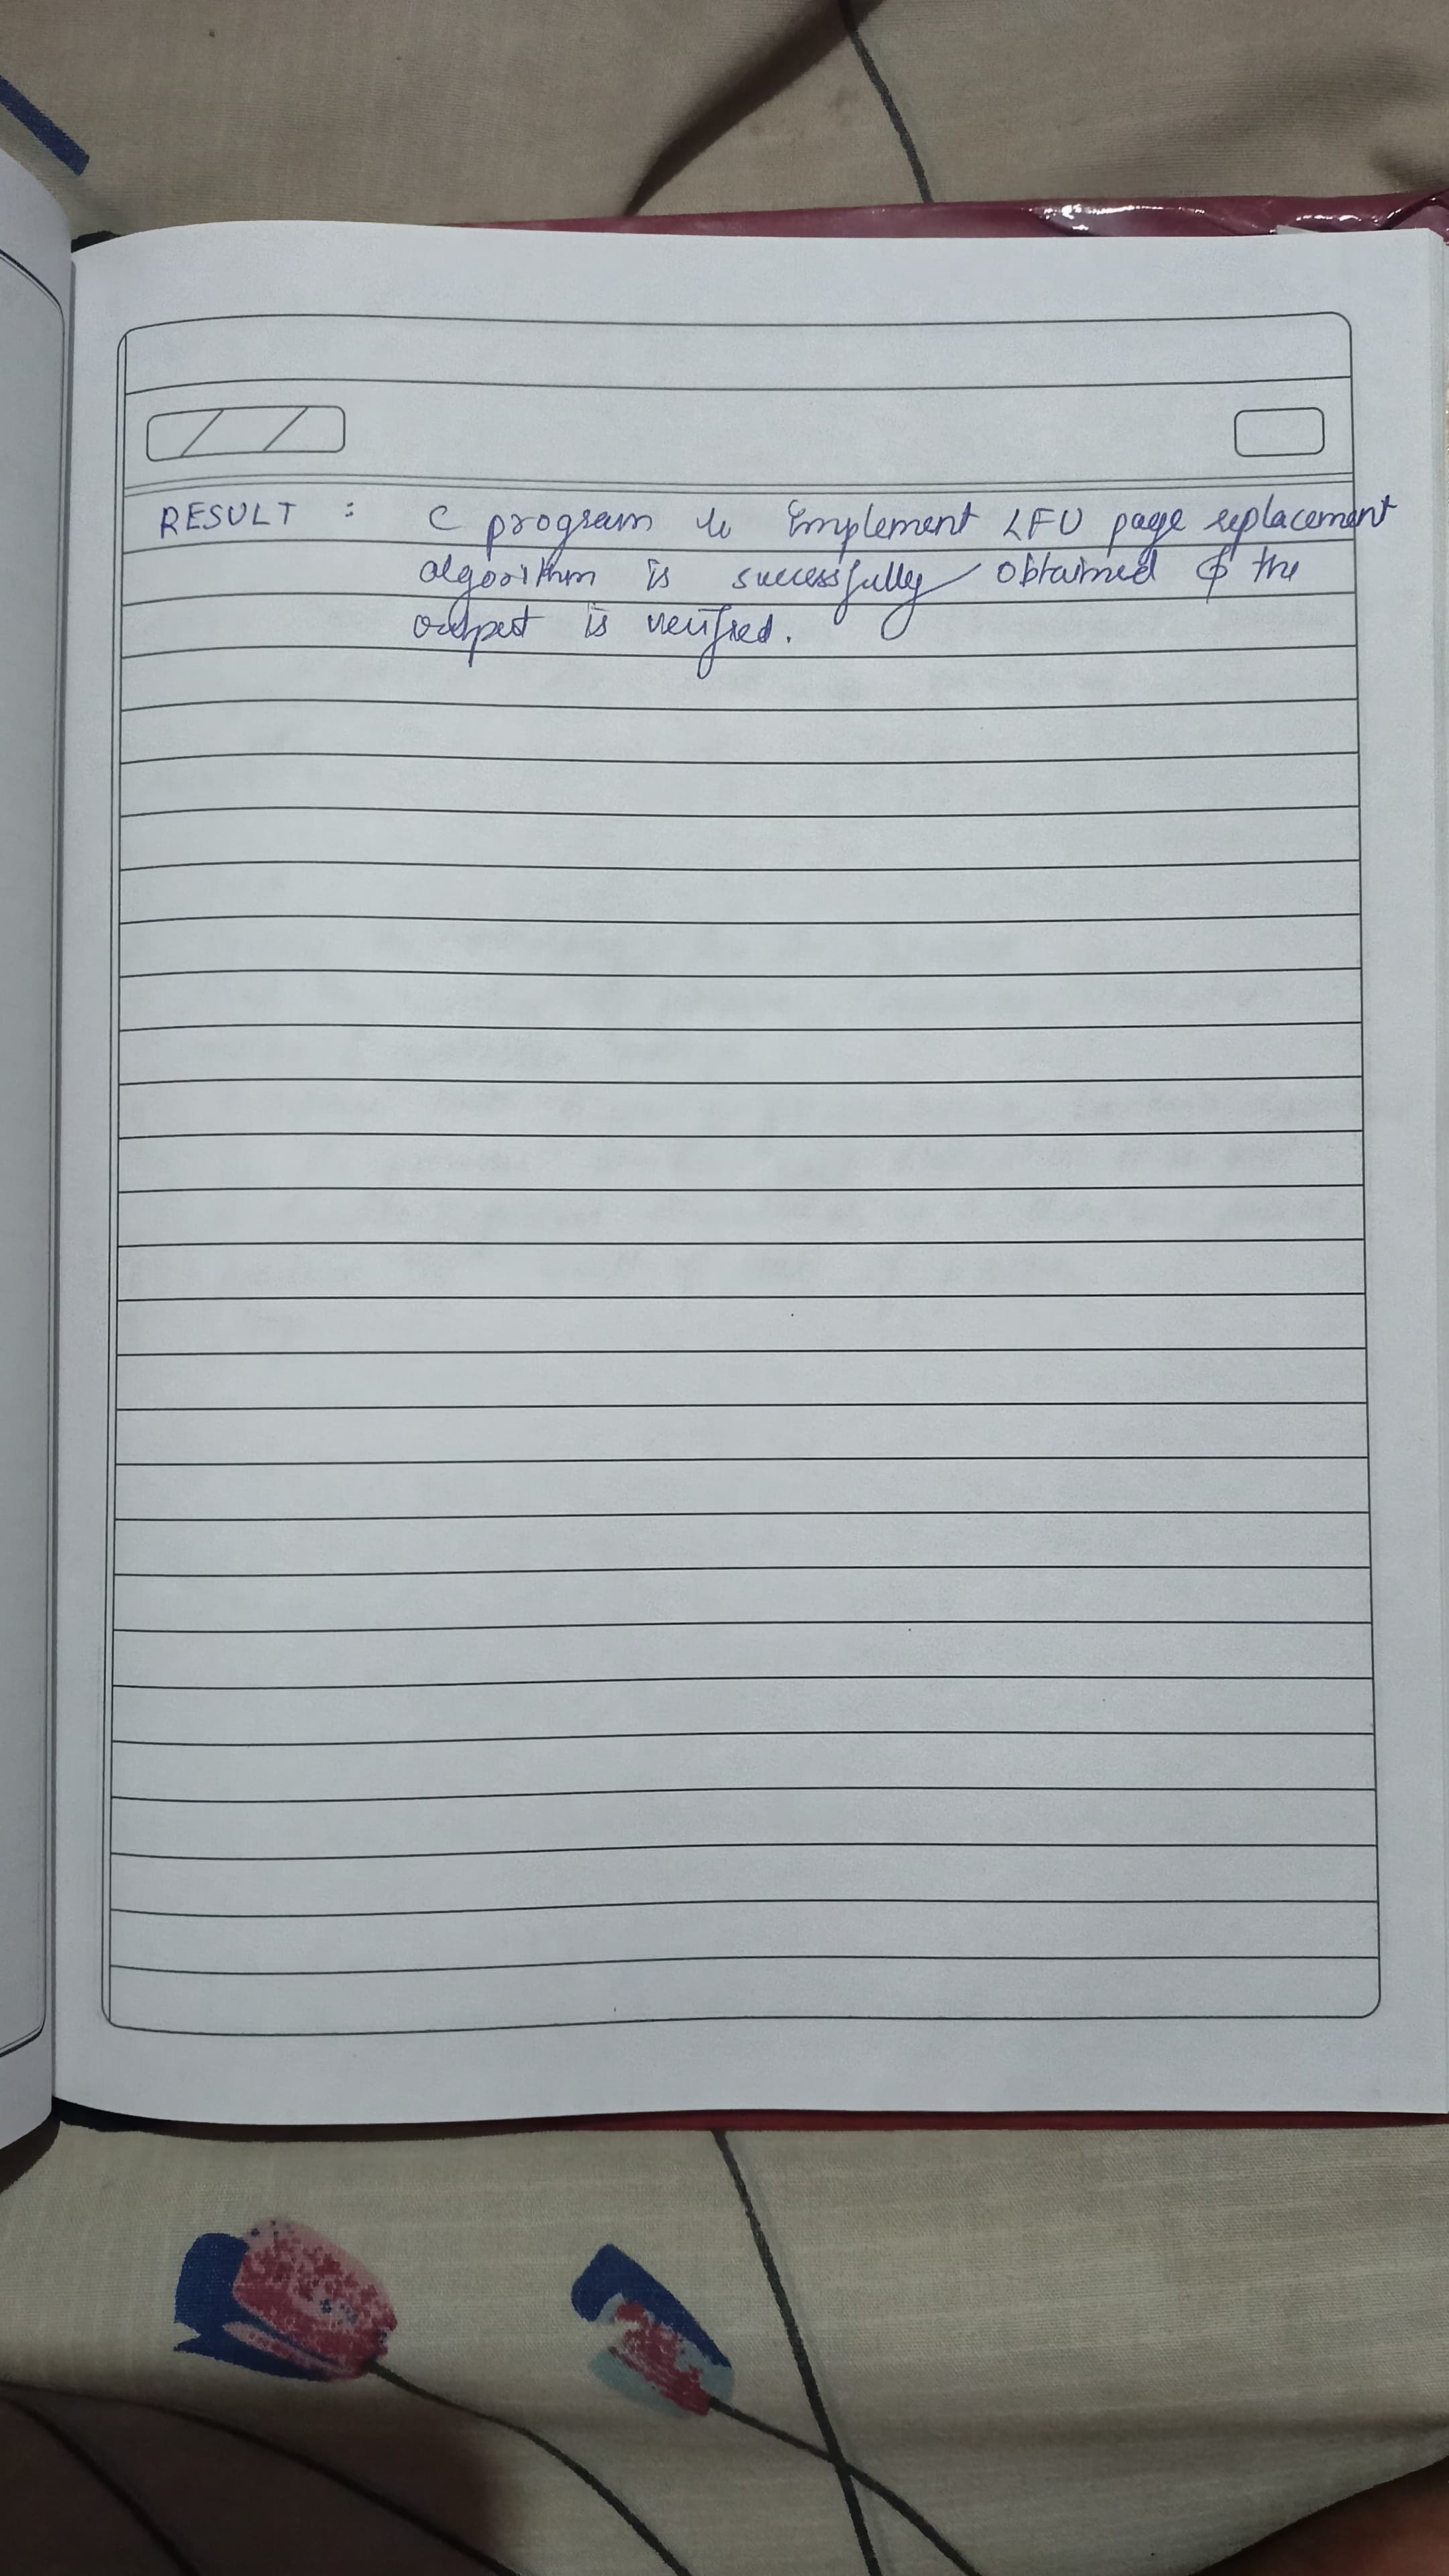 RESULT : C program to implement LFU page replacement
algorithm is successfully obtained & the
output is verified.